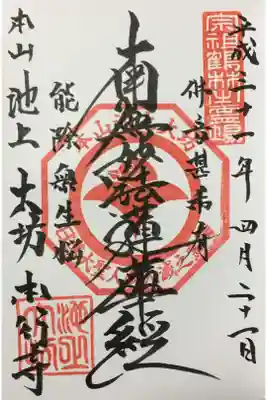 平成三十一年四月二十一日
佛音甚希有
南無妙法蓮華經
能除衆生悩
本山池上大坊本行寺